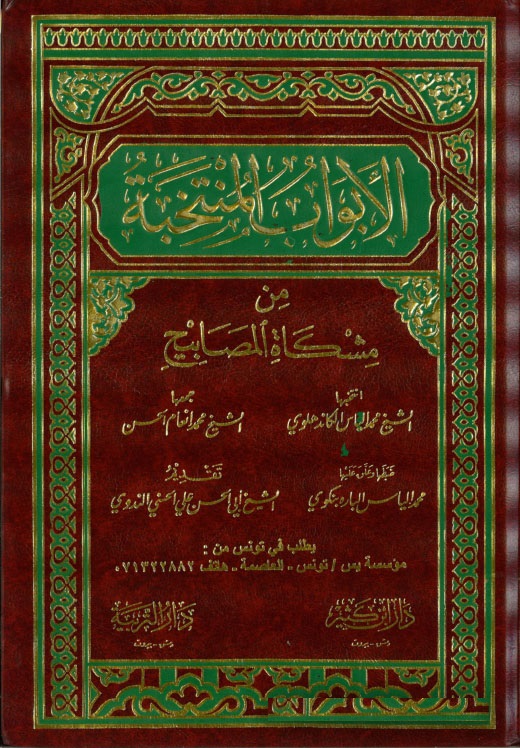 الأبواب المنتخبة
من
مشكاة المصابيح
انتخبها
الشيخ محمد إلياس الكاندهلوي
جمعها
الشيخ محمد إنعام الحسن
ضبطها وعلق عليها
محمد إلياس الباره بنكوي
تقديم
الشيخ أبي الحسن علي الحسني الندوي
يطلب في تونس من :
مؤسسة يس / تونس - العاصمة - هاتف ٠٧١٣٢٢٨٨٢
دار ابن كثير
دمشق - بيروت
دار التربية
دمشق - بيروت